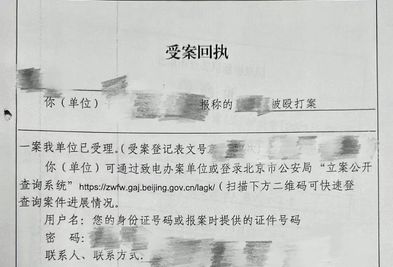 受案回执
你（单位）
报称的
被殴打案
一案我单位已受理。（受案登记表文号
你（单位）可通过致电办案单位或登录北京市公安局“立案公开
查询系统”https://zwfw.gaj.beijing.gov.cn/lagk/（扫描下方二维码可快速登
查询案件进展情况。
用户名：您的身份证号码或报案时提供的证件号码
密　码：
联系人、联系方式：